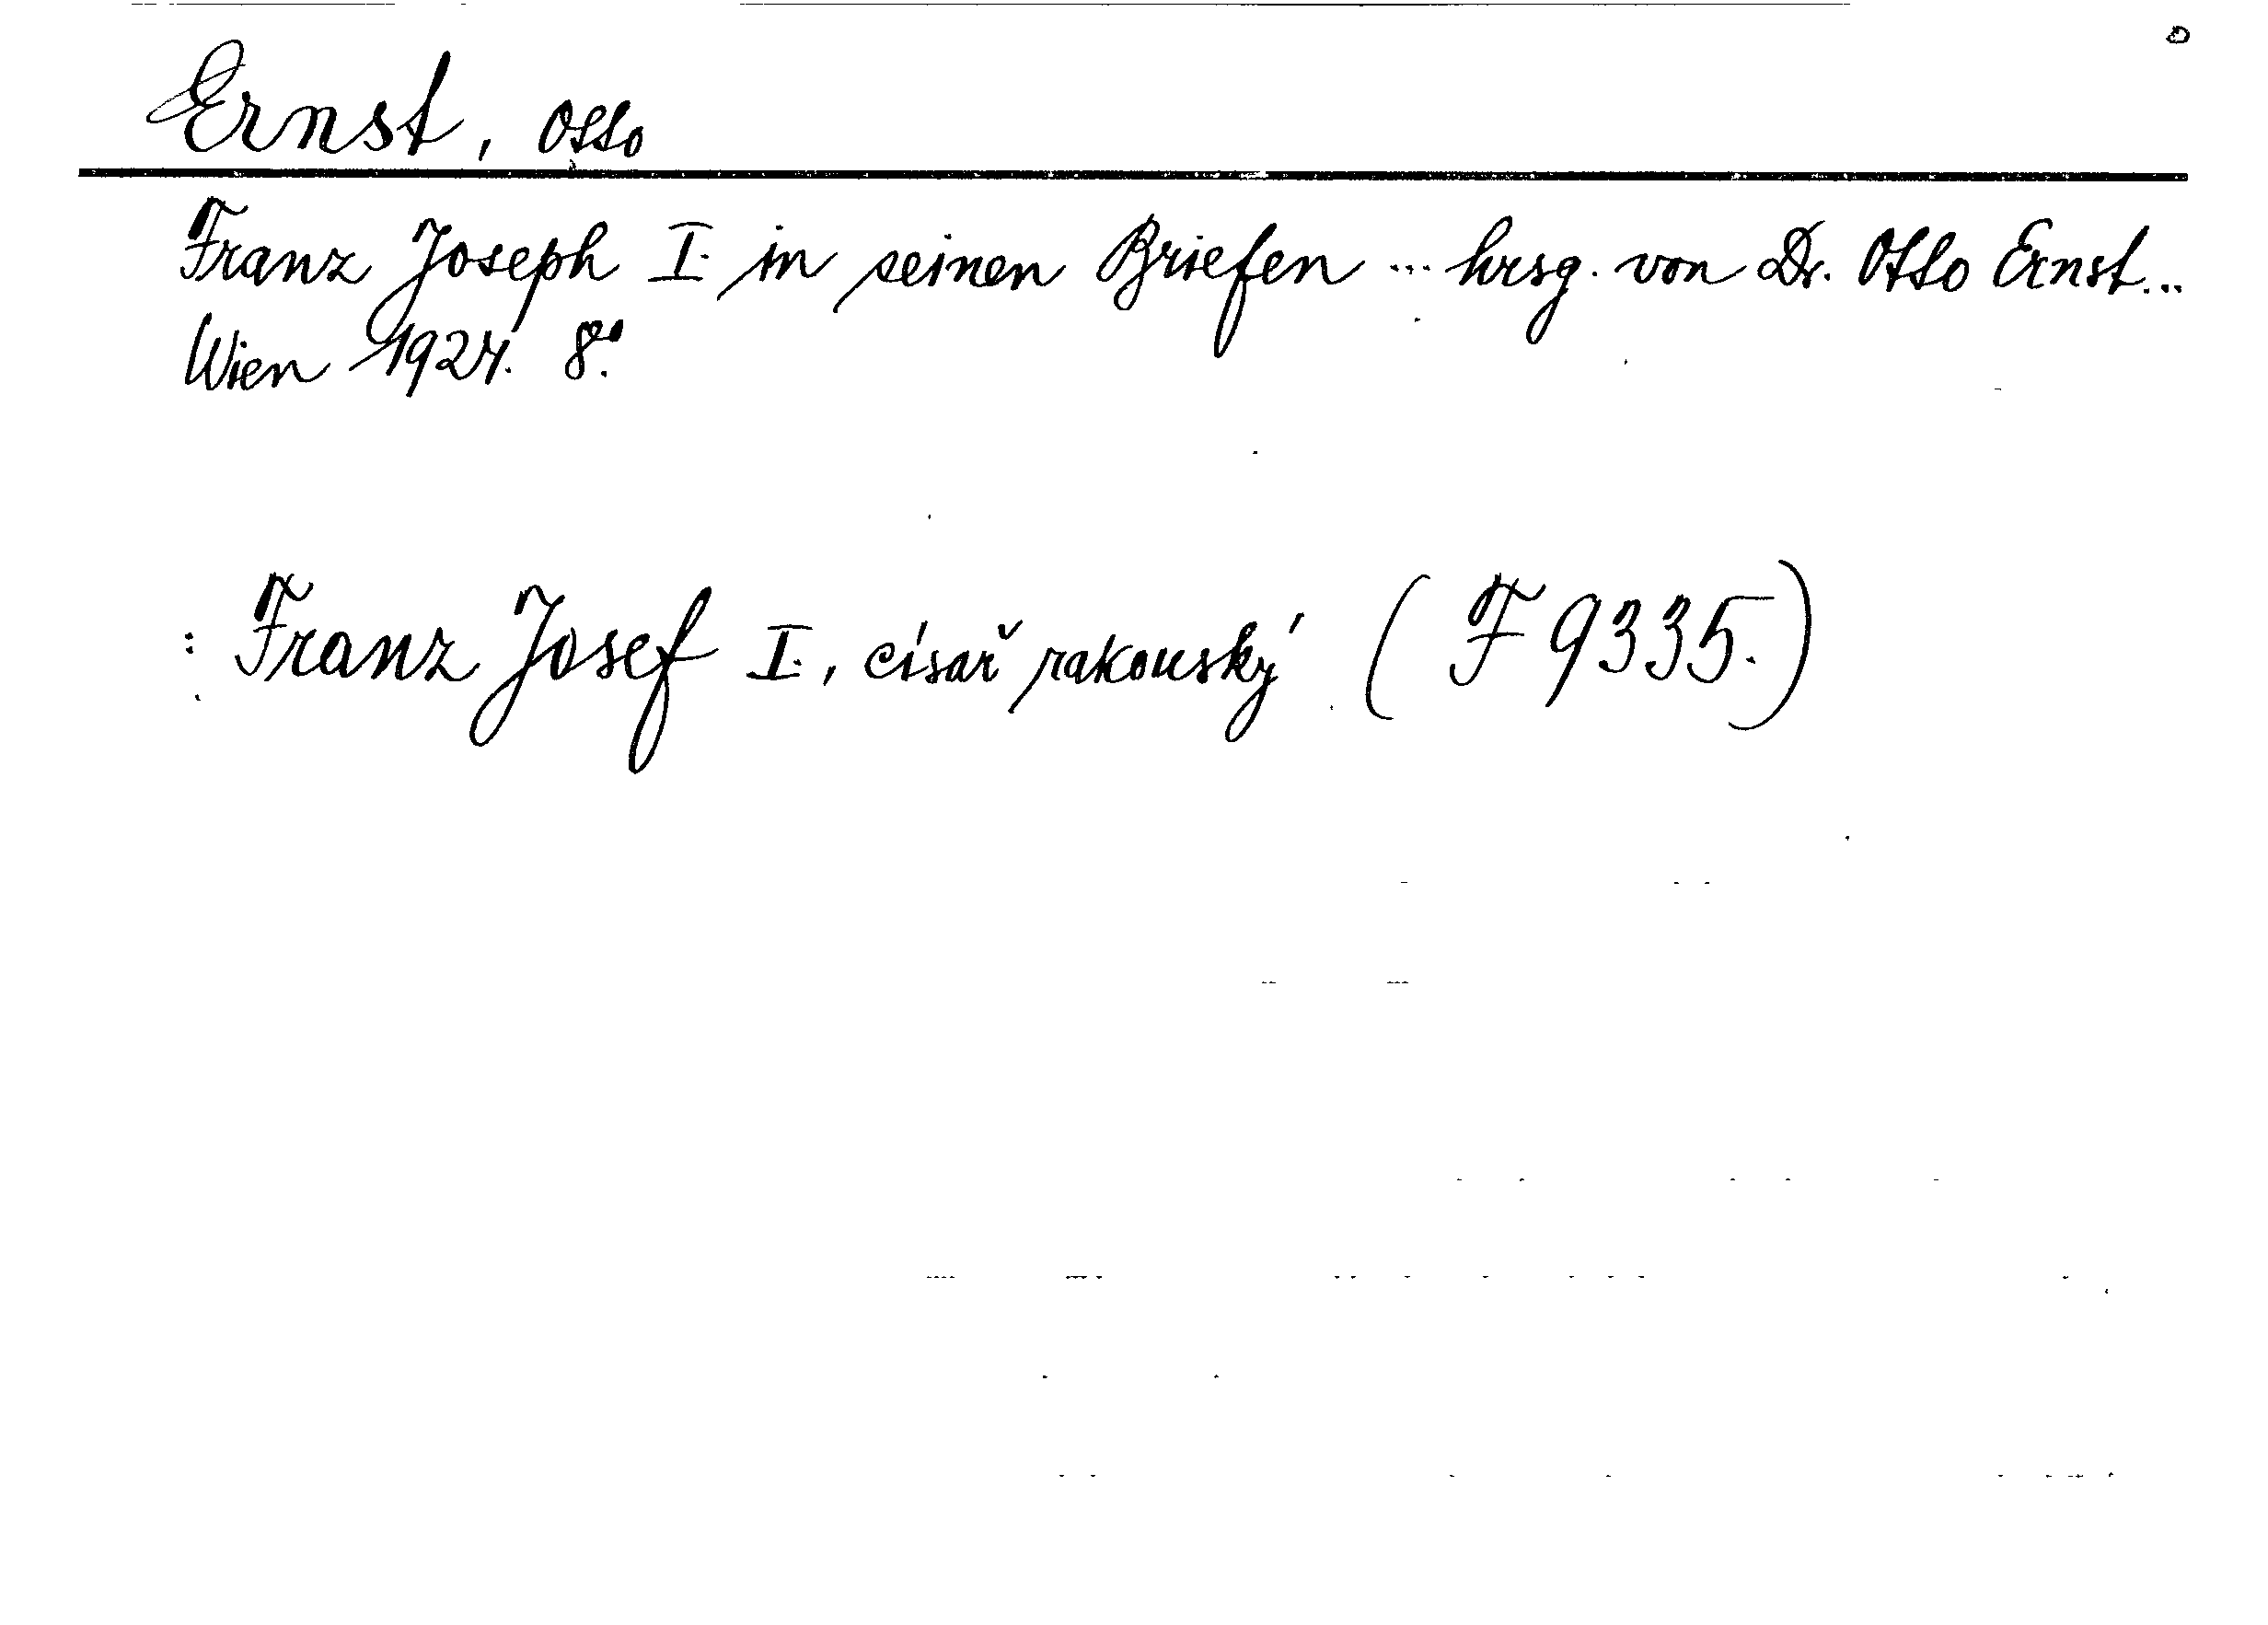 Ernst, Otto
Franz Joseph I. in seinen Briefen ... hrsg. von Dr. Otto Ernst...
Wien 1924. 8°.
: Franz Josef I., císař rakouský (F 9335.)